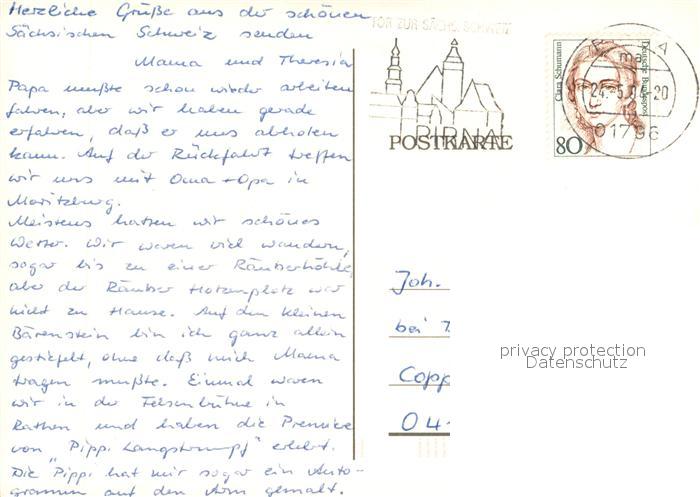 Herzliche Grüße aus der schönen
Sächsischen Schweiz senden
Mama und Theresia
Papa mußte schon wieder arbeiten
fahren, aber wir haben gerade
erfahren, daß er uns abholen
kann. Auf der Rückfahrt treffen
wir uns mit Oma + Opa in
Moritzburg.
Meistens hatten wir schönes
Wetter. Wir waren viel wandern,
sogar bis zu einer Räuberhöhle,
aber der Räuber Hotzenplotz war
nicht zu Hause. Auf den kleinen
Bärenstein bin ich ganz allein
gestiefelt, ohne daß mich Mama
tragen mußte. Einmal waren
wir in der Felsenbühne in
Rathen und haben die Premiere
von "Pippi Langstrumpf" erlebt.
Die Pippi hat mir sogar ein Auto-
gramm auf den Arm gemalt.
TOR ZUR SÄCHS. SCHWEIZ
PIRNA
POSTKARTE
Clara Schumann
Deutsche Bundespost
80
24.-5.94.-20
01796
Joh.
bei
Copp
04
privacy protection
Datenschutz